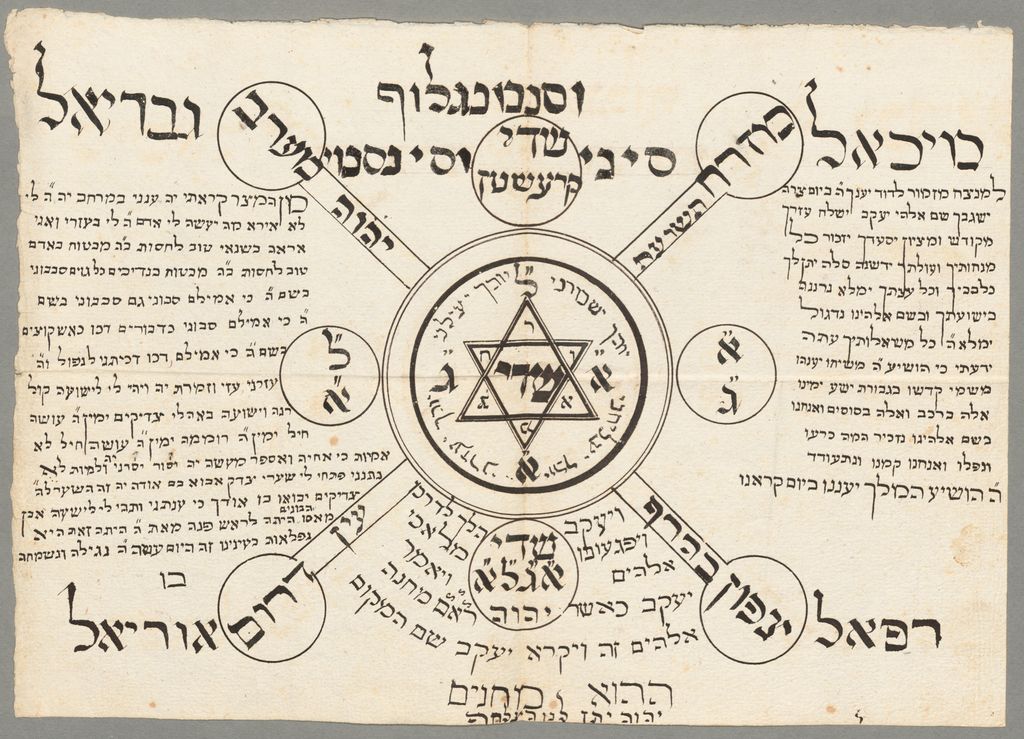 וסנמנגלוף
מיכאל
מזרח
שדי
קרעשטן
סיני
מערב
יהוה
גבריאל
למנצח מזמור לדוד יענך ה֞ ביום צרה
ישגבך שם אלהי יעקב ישלח עזרך
מקודש ומציון יסעדך יזכור כל
מנחותיך ועולתך ידשנה סלה יתן לך
כלבביך וכל עצתך ימלא נרננה
בישועתך ובשם אלהינו נדגול
ימלא ה֞ כל משאלותיך עתה
ידעתי כי הושיע ה֞ משיחו יענהו
משמי קדשו בגבורת ישע ימינו
אלה ברכב ואלה בסוסים ואנחנו
בשם אלהינו נזכיר המה כרעו
ונפלו ואנחנו קמנו ונתעודד
ה֞ הושיע המלך יעננו ביום קראנו
מן המצר קראתי יה ענני במרחב יה ה֞ לי
לא אירא מה יעשה לי אדם ה֞ לי בעזרי ואני
אראה בשנאי טוב לחסות בה֞ מבטוח באדם
טוב לחסות בה֞ מבטוח בנדיבים כל גוים סבבוני
בשם ה֞ כי אמילם סבוני גם סבבוני בשם
ה֞ כי אמילם סבוני כדבורים דכו כאש קוצים
בשם ה֞ כי אמילם דכו דכיתני לנפול וה֞
עזרני עזי וזמרת יה ויהי לי לישועה קול
רנה וישועה באהלי צדיקים ימין ה֞ עושה
חיל ימין ה֞ רוממה ימין ה֞ עושה חיל לא
אמות כי אחיה ואספר מעשה יה יסור יסרני יה ולמות לא
נתנני פתחי לי שערי צדק אבוא בם אודה יה זה השער לה֞
צדיקים יבואו בו אודך כי ענתני ותהי לי לישועה אבן
מאסו הבונים היתה לראש פנה מאת ה֞ היתה זאת היא
נפלאות בעינינו זה היום עשה ה֞ נגילה ונשמחה
בו
א֞
ג֞
ל֞
א֞
שדי
רפאל
צפון
דרום
אוריאל
שדי
א֞ג֞ל֞א֞
יהוה
ויעקב הלך לדרכו
ויפגעו בו מלאכי
אלהים ויאמר
יעקב כאשר ראם מחנה
אלהים זה ויקרא יעקב שם המקום
ההוא מחנים